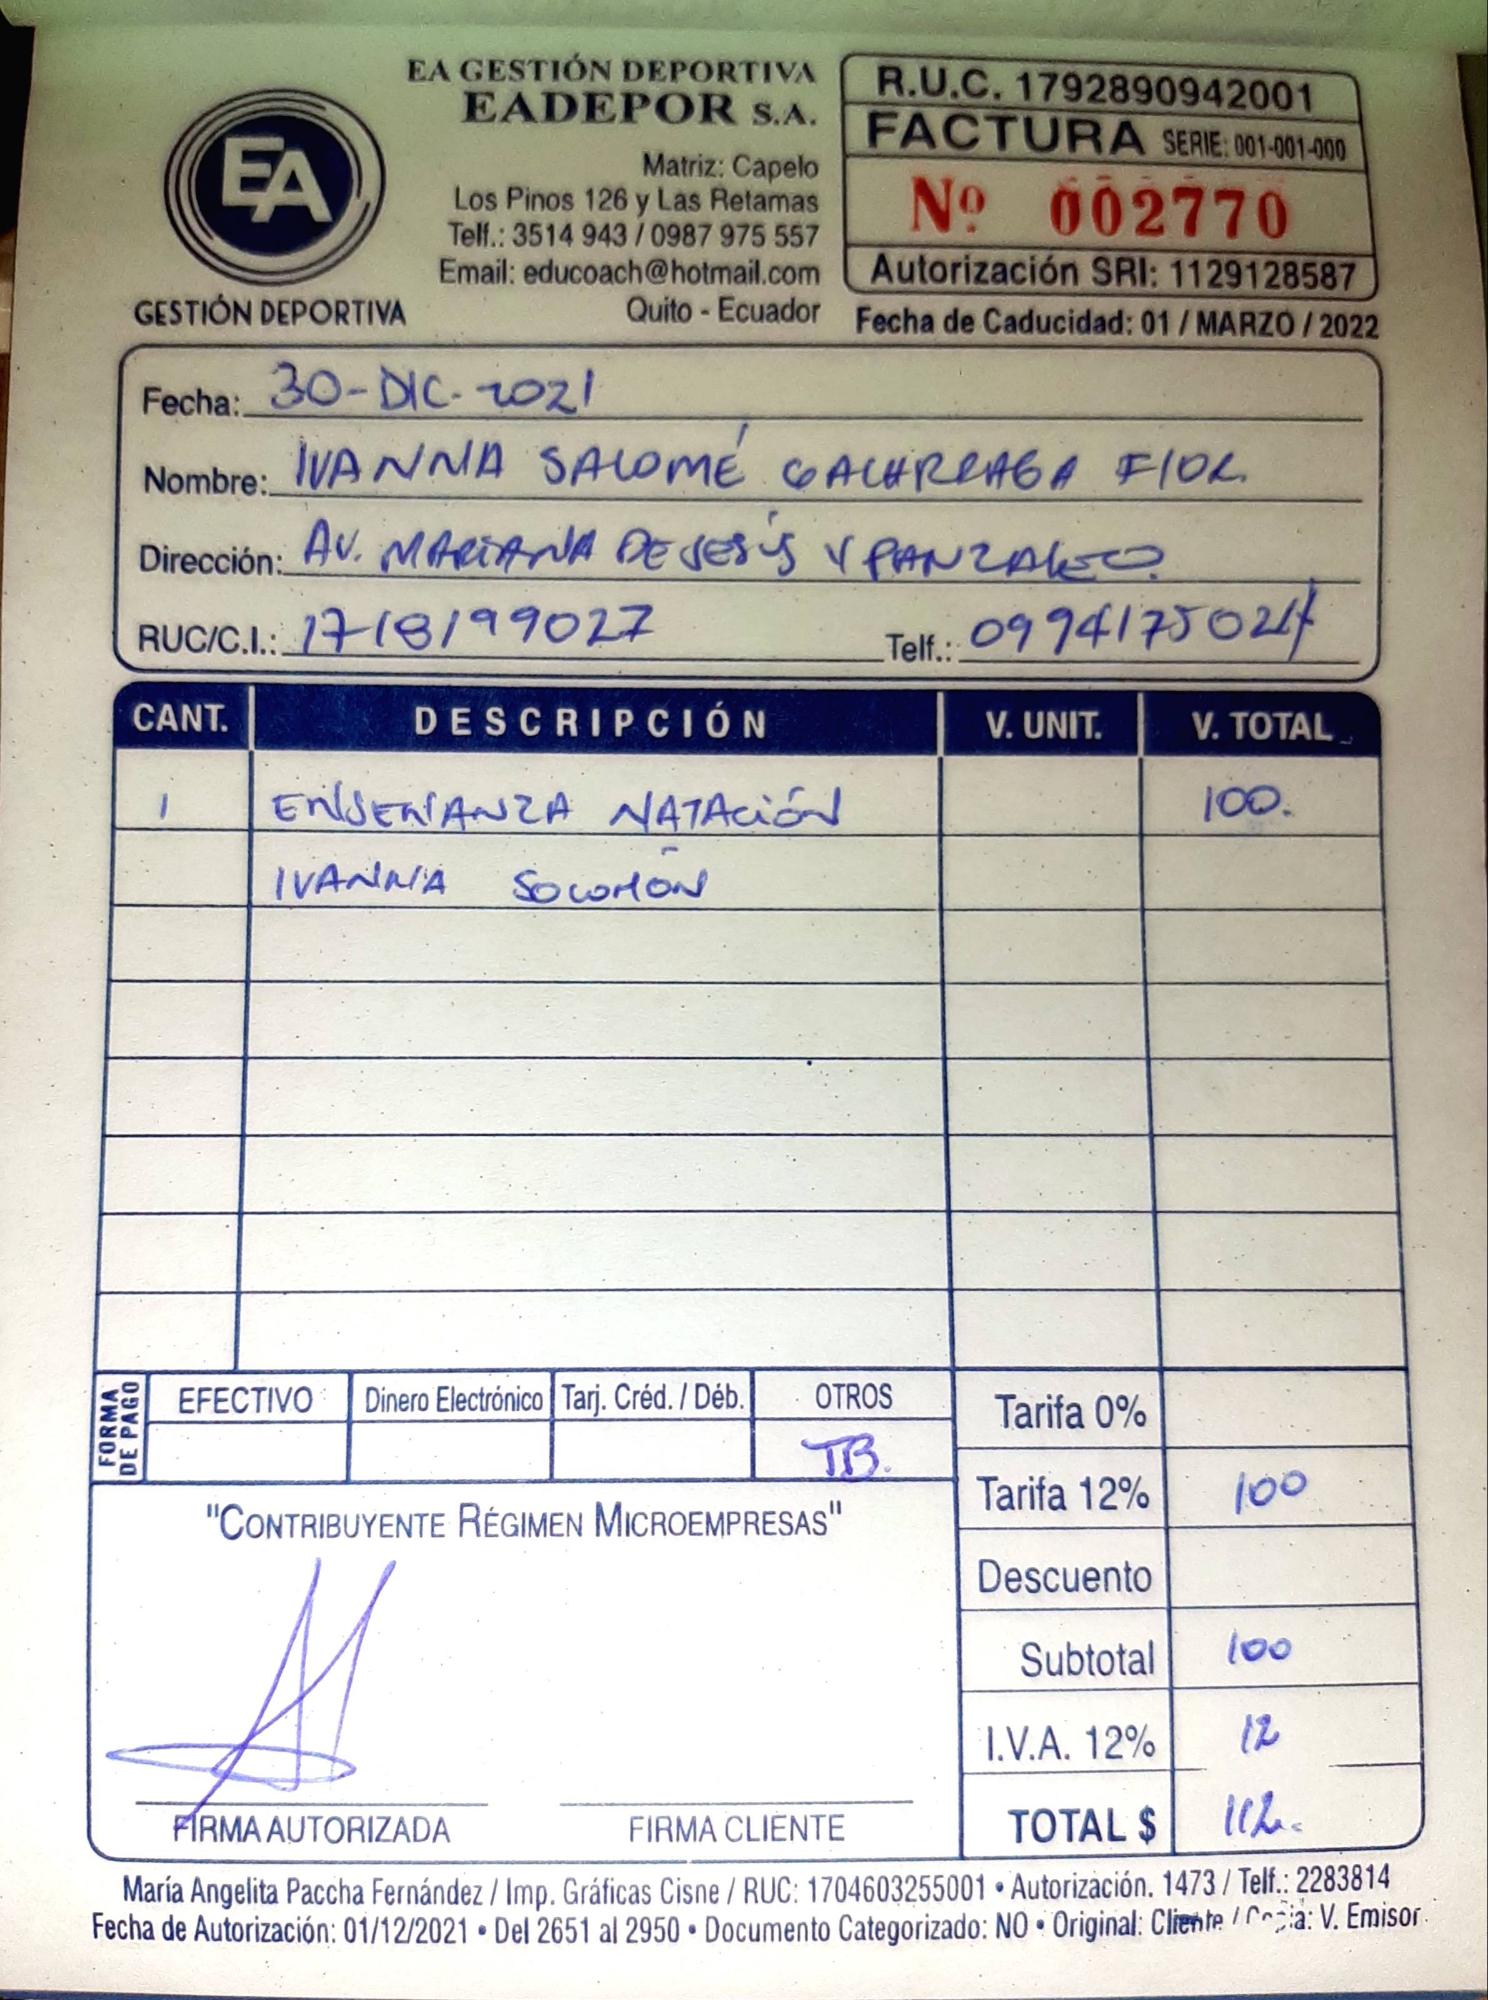 EA GESTIÓN DEPORTIVA
EADEPOR S.A.
Matriz: Capelo
Los Pinos 126 y Las Retamas
Telf.: 3514 943 / 0987 975 557
Email: educoach@hotmail.com
Quito - Ecuador
EA
GESTIÓN DEPORTIVA
R.U.C. 1792890942001
FACTURA SERIE: 001-001-000
Nº 002770
Autorización SRI: 1129128587
Fecha de Caducidad: 01 / MARZO / 2022
Fecha: 30-DIC-2021
Nombre: IVANNA SALOMÉ
Dirección: AV. MARIANA DE JESÚS Y PANZALEO.
RUC/C.I.: 1718199027 Telf.: 0994175024
CANT. DESCRIPCIÓN V. UNIT. V. TOTAL
1 ENSEÑANZA NATACIÓN 100.
IVANNA
FORMA DE PAGO
EFECTIVO Dinero Electrónico Tarj. Créd. / Déb. OTROS
TB.
Tarifa 0%
Tarifa 12% 100
Descuento
Subtotal 100
I.V.A. 12% 12
TOTAL $ 112.
"CONTRIBUYENTE RÉGIMEN MICROEMPRESAS"
FIRMA AUTORIZADA FIRMA CLIENTE
María Angelita Paccha Fernández / Imp. Gráficas Cisne / RUC: 1704603255001 • Autorización. 1473 / Telf.: 2283814
Fecha de Autorización: 01/12/2021 • Del 2651 al 2950 • Documento Categorizado: NO • Original: Cliente / Copia: V. Emisor